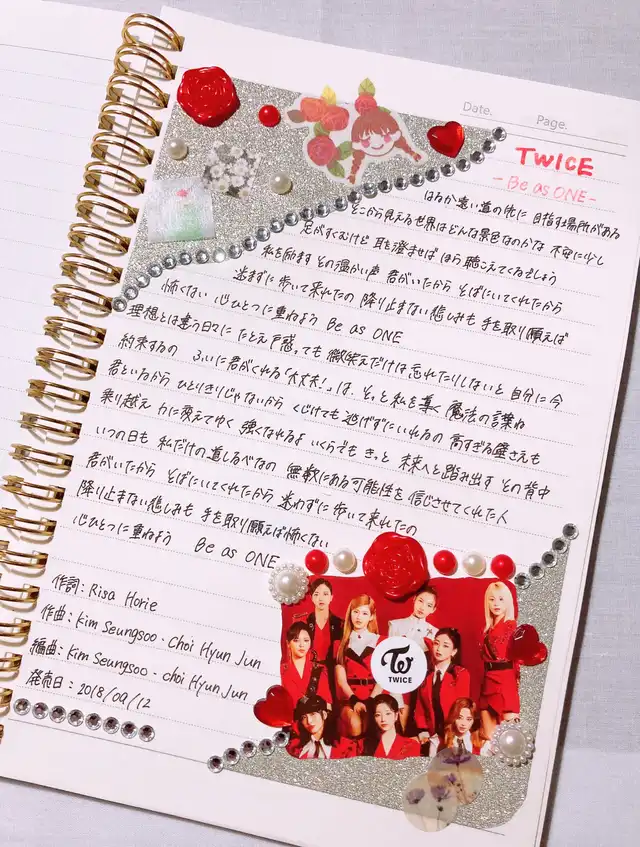 Date.
Page.
TWICE
- Be as ONE -
はるか遠い道の先に 目指す場所がある
どこから見える世界はどんな景色なのかな 不安に少し
足がすくむけど 耳を澄ませば ほら 聴こえてくるでしょう
私を励ます その温かい声 君がいたから そばにいてくれたから
迷わずに 歩いて来れたの 降り止まない悲しみも 手を取り願えば
怖くない 心ひとつに重ねよう Be as ONE
理想とは違う日々に たとえ戸惑っても 微笑えだけは忘れたりしないと 自分に今
約束するの ふいに君がくれる「大丈夫!」は、そっと私を導く 魔法の言葉ね
君といるから ひとりきりじゃないから くじけても 逃げずにいれるの 高すぎる壁さえも
乗り越え 力に変えてゆく 強くなれるよ いくらでも きっと 未来へと踏み出す その背中
いつの日も 私だけの道しるべなの 無敵にある可能性を 信じさせてくれた人
君がいたから そばにいてくれたから 迷わずに 歩いて来れたの
降り止まない悲しみも 手を取り願えば怖くない
心ひとつに重ねよう Be as ONE
作詞: Risa Horie
作曲: Kim Seungsoo・Choi Hyun Jun
編曲: Kim Seungsoo・choi Hyun Jun
発売日: 2018/09/12
TWICE